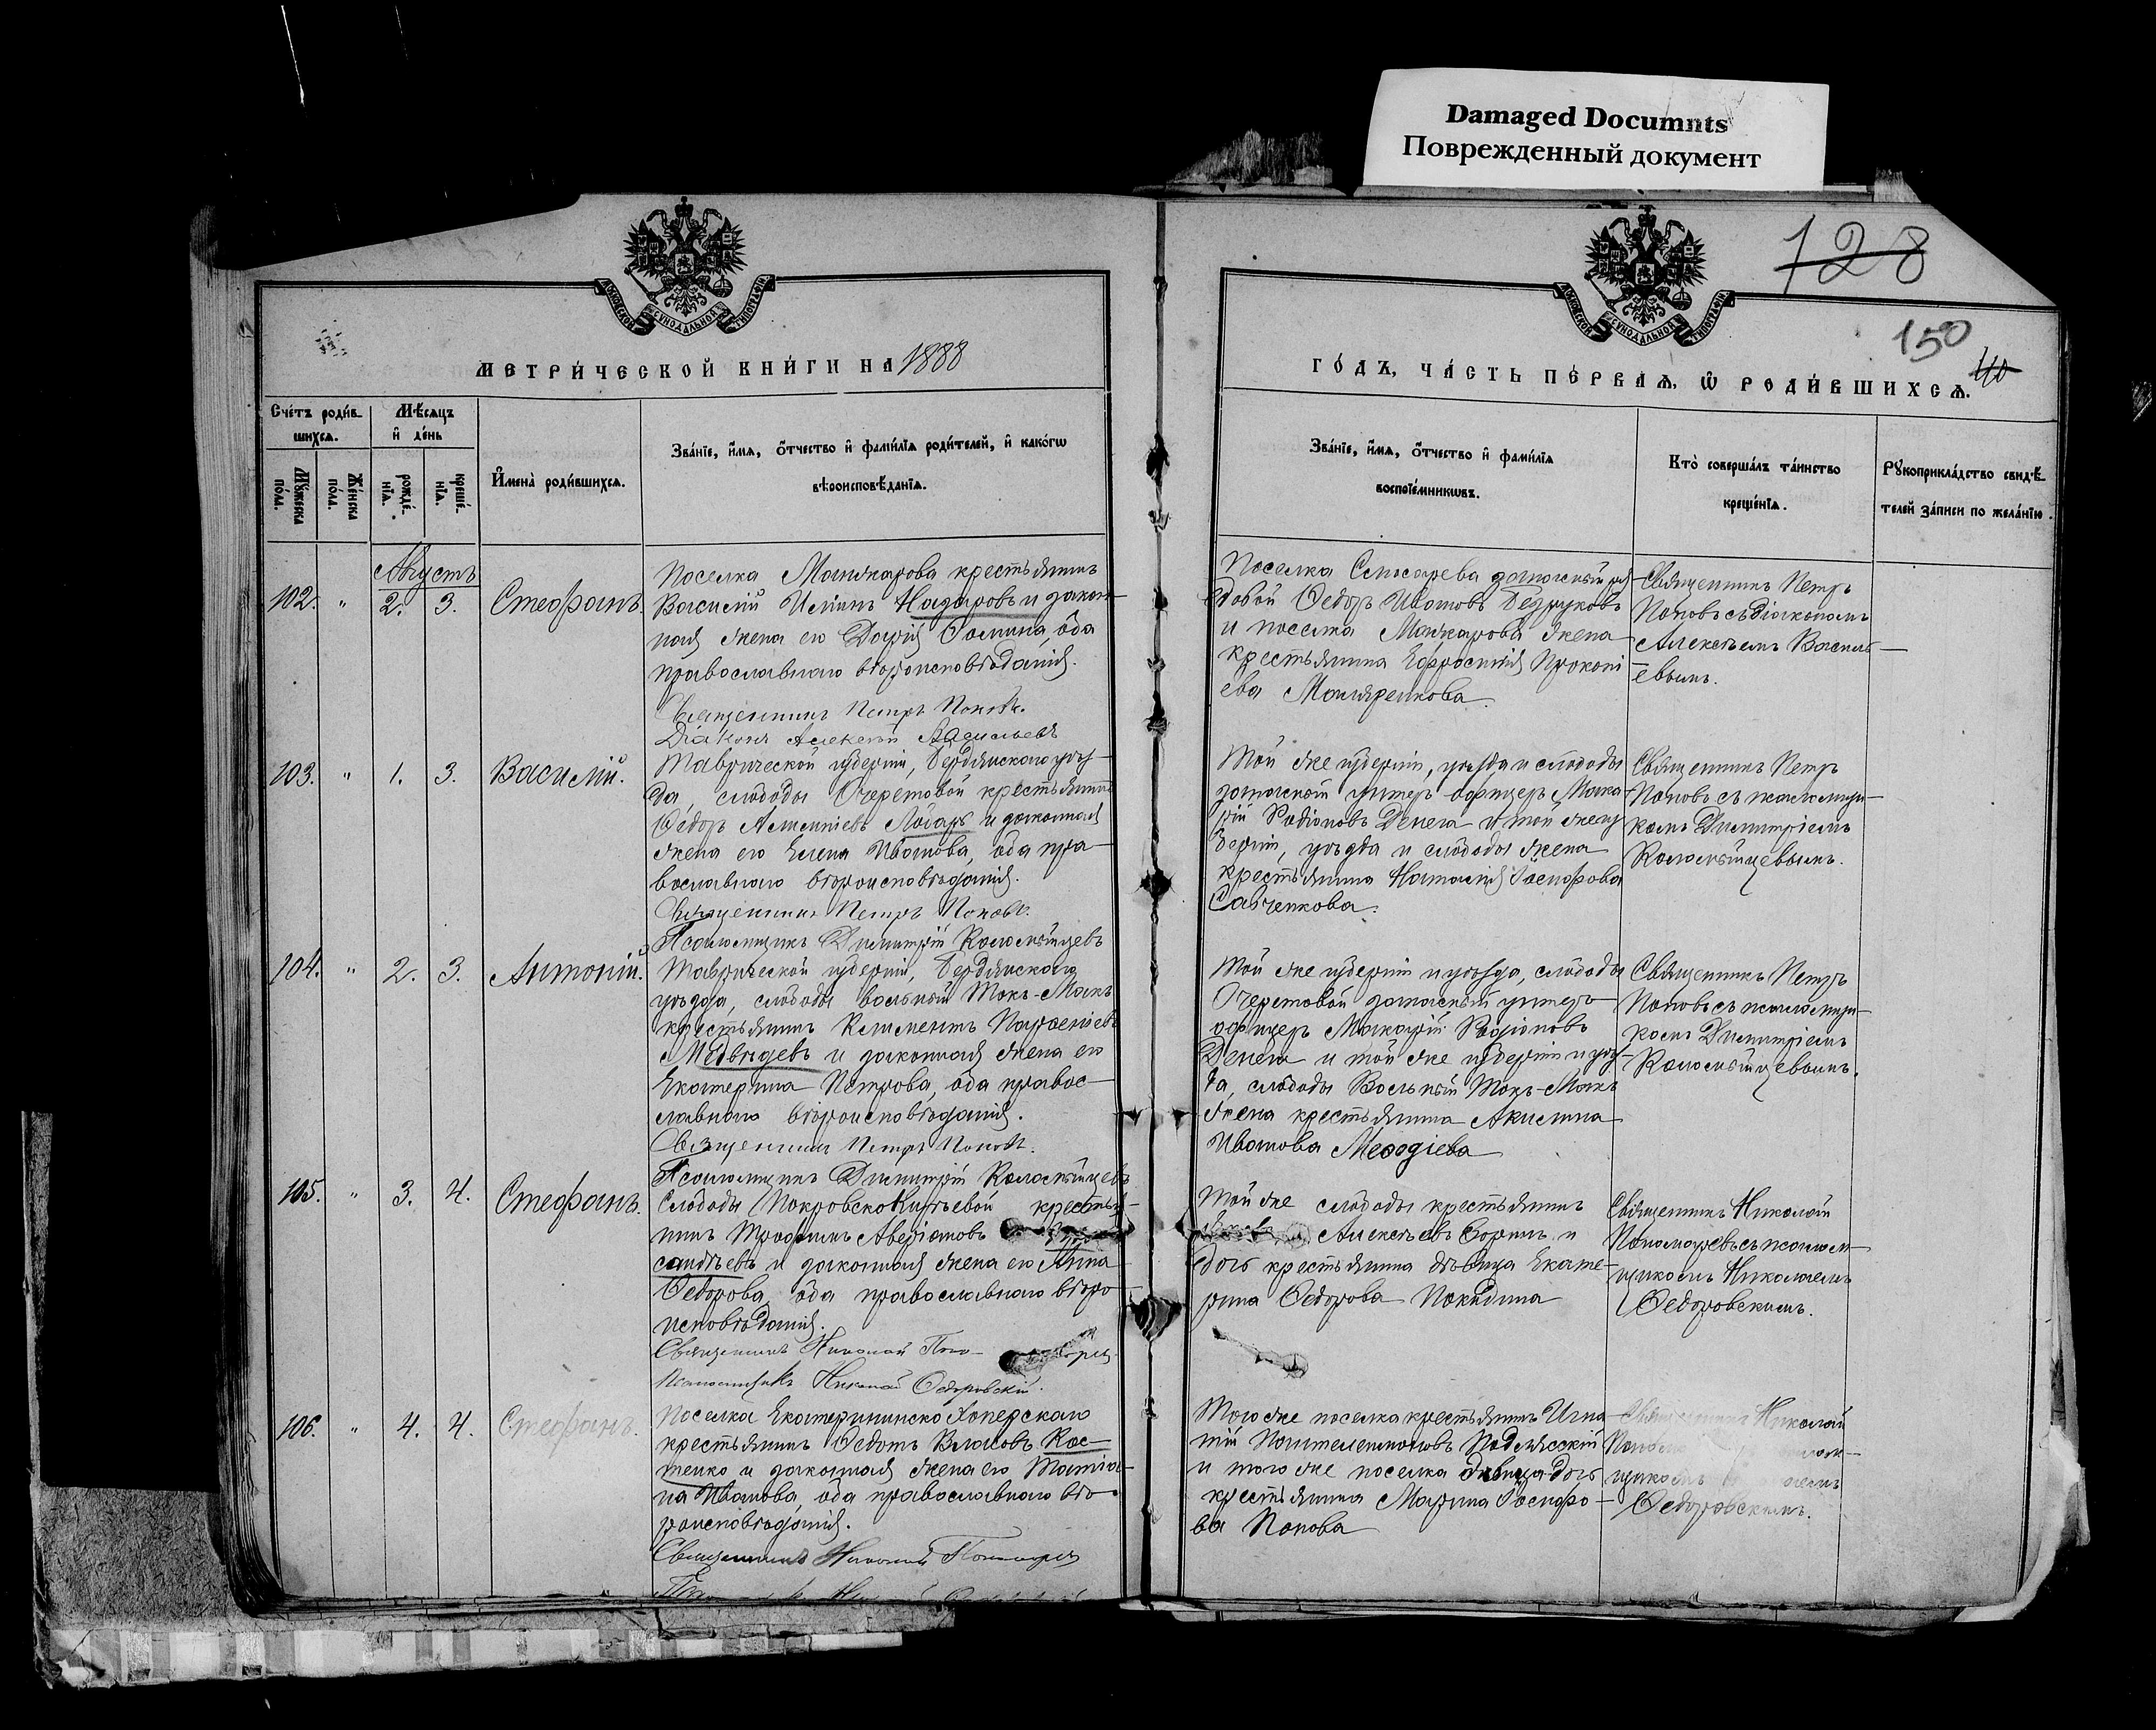 Damaged Documnts
Поврежденный документ
128
150
110
МОСКОВСКОЙ СУНОДАЛЬНОЙ ТИПОГРАФІИ
МОСКОВСКОЙ СУНОДАЛЬНОЙ ТИПОГРАФІИ
МЕТРИ́ЧЕСКОЙ КНИ́ГИ НА 1888
ГО́ДЪ, ЧА́СТЬ ПЕ́РВАѦ, Ѡ҆ РОДИ́ВШИХСѦ.
Сче́тъ роди́в-
шихсѧ.
Мꙋ́жеска по́ла.
Же́нска по́ла.
Мѣ́сѧцъ
и҆ де́нь
рожде́-
нїѧ.
креще́-
нїѧ.
И҆мена̀ роди́вшихсѧ.
Зва́нїе, и҆́мѧ, ѻ҆́тчество и҆ фами́лїѧ роди́телей, и҆ како́гѡ
вѣроисповѣ́данїѧ.
Зва́нїе, и҆́мѧ, ѻ҆́тчество и҆ фами́лїѧ
воспрїе́мникѡвъ.
Кто̀ соверша́лъ та́инство
креще́нїѧ.
Рꙋкоприкла́дство свидѣ́-
телей за́писи по жела́нїю.
Августъ
102. " 2. 3. Стефанъ.
Поселка крестьянинъ
Василій Ильинъ Надаровъ и закон-
ная жена его Дарія Ѳомина, оба
православнаго вѣроисповѣданія.
Священникъ Петръ Поповъ.
Діаконъ Алексѣй Васильевъ
Поселка Слюсарева запасный ря-
довой Ѳедоръ Ивановъ Безруковъ
и поселка жена
крестьянина Ефросинія Прокопі-
ева
Священникъ Петръ
Поповъ съ діакономъ
Алексѣемъ Василь-
евымъ.
103. " 1. 3. Василій.
Таврической губерніи, Бердянскаго уѣз-
да, слободы Очеретовой крестьянинъ
Ѳедоръ Лобарь и законная
жена его Елена Иванова, оба пра-
вославнаго вѣроисповѣданія.
Священникъ Петръ Поповъ.
Псаломщикъ Димитрій Коломѣйцевъ
Той же губерніи, уѣзда и слободы
запасный унтеръ-офицеръ Мака-
рій Родіоновъ Денега и той же гу-
берніи, уѣзда и слободы жена
крестьянина Наталія
Савченкова.
Священникъ Петръ
Поповъ съ псаломщи-
комъ Димитріемъ
Коломѣйцевымъ.
104. " 2. 3. Антоній.
Таврической губерніи, Бердянскаго
уѣзда, слободы вольный Токъ-Макъ
крестьянинъ Климентъ Парѳеніевъ
Медвѣдевъ и законная жена его
Екатерина Петрова, оба правос-
лавнаго вѣроисповѣданія.
Священникъ Петръ Поповъ.
Псаломщикъ Димитрій Коломѣйцевъ
Той же губерніи и уѣзда, слободы
Очеретовой запасный унтеръ-
офицеръ Макарій Родіоновъ
Денега и той же губерніи и уѣз-
да, слободы Вольный Токъ-Макъ
жена крестьянина Акилина
Иванова Меѳодіева
Священникъ Петръ
Поповъ съ псаломщи-
комъ Димитріемъ
Коломѣйцевымъ.
105. " 3. 4. Стефанъ.
Слободы Покровско Кирѣевой крестья-
нинъ Трофимъ Аверіановъ
сандѣевъ и законная жена его Анна
Ѳедорова, оба православнаго вѣро
исповѣданія.
Священникъ Николай Поно-
Псаломщикъ Николай Ѳедоровскій.
Той же слободы крестьянинъ
Алексѣевъ и
дочь крестьянина дѣвица Екате-
рина Ѳедорова
Священникъ Николай
Пономаревъ съ псалом-
щикомъ Николаемъ
Ѳедоровскимъ.
106. " 4. 4. Стефанъ.
Поселка Екатерининско Хоперскаго
крестьянинъ Ѳедотъ Власовъ Кос-
тенко и законная жена его Татіа-
на Иванова, оба православнаго вѣ-
роисповѣданія.
Священникъ Николай Пономарев
Того же поселка крестьянинъ Игна-
тій Пантелеимоновъ Подлѣсскій
и того же поселка дѣвица дочь
крестьянина Марина
ва Попова
Священникъ Николай
щикомъ
Ѳедоровскимъ.